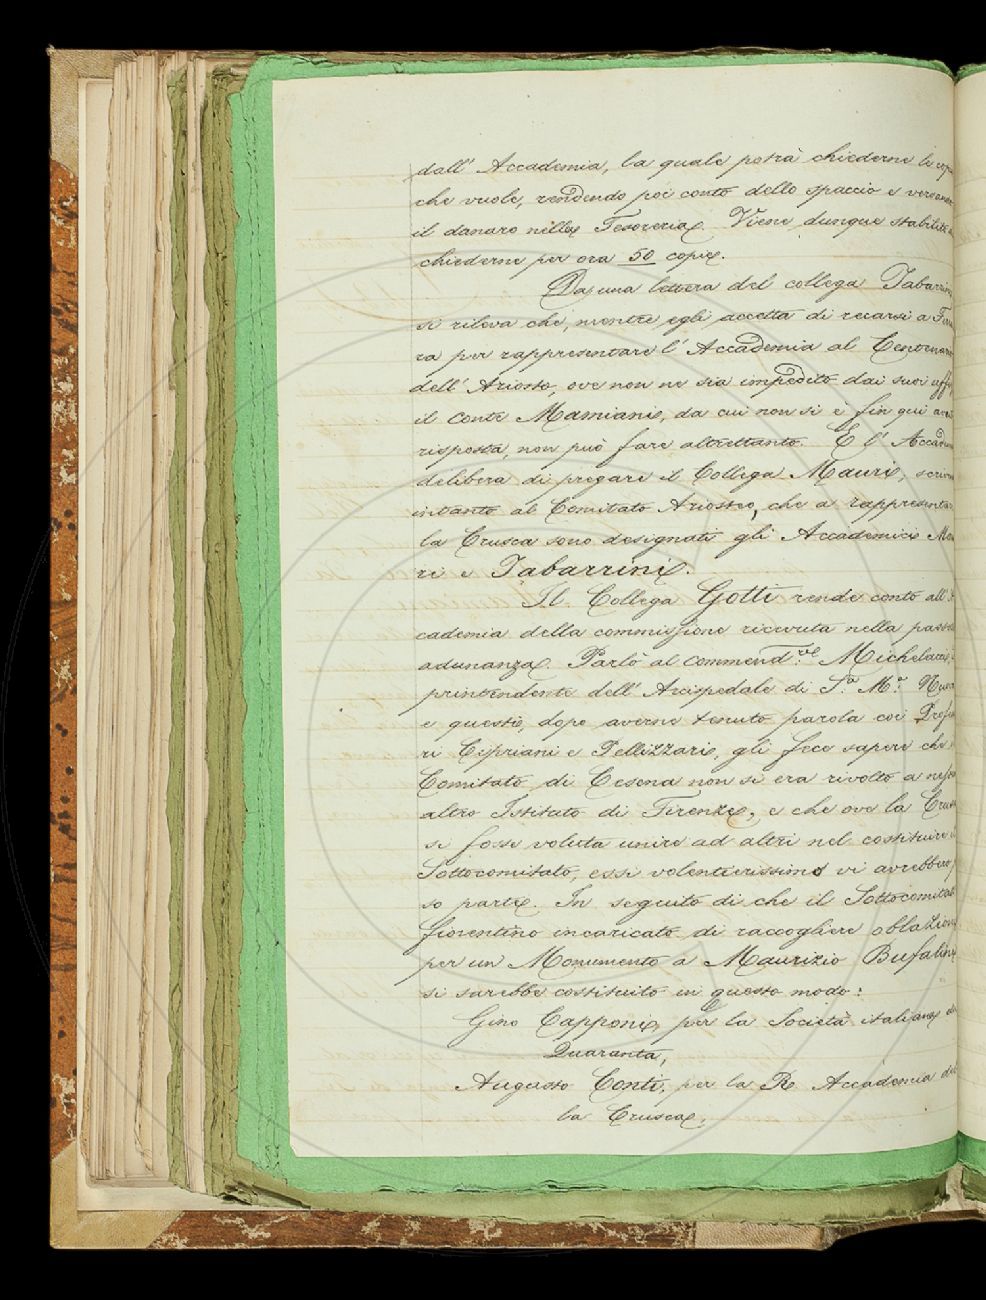 dall' Accademia, la quale potrà chiederne le copie
che vuole, rendendo poi conto dello spaccio e versando
il danaro nella Tesoreria. Viene dunque stabilito di
chiederne per ora 50 copie.
Da una lettera del collega Tabarrini
si rileva che, mentre egli accetta di recarsi a Ferra
ra per rappresentare l'Accademia al Centenario
dell'Ariosto, ove non ne sia impedito dai suoi uffi
il Conte Mamiani, da cui non si è fin qui avuta
risposta, non può fare altrettanto. E l'Accademia
delibera di pregare il Collega Mauri, scrivendo
intanto al Comitato Ariosteo, che a rappresentare
la Crusca sono designati gli Accademici Mau
ri e Tabarrini.
Il Collega Gotti rende conto all'Ac
cademia della commissione ricevuta nella passata
adunanza. Parlò al commend.re Michelacci,
printendente dell'Arcispedale di S.a M.a Nuova
e questi, dopo averne tenuto parola coi Profes
ri Cipriani e Pellizzari, gli fece sapere che il
Comitato di Cesena non si era rivolto a nessun
altro Istituto di Firenze, e che ove la Crusca
si fosse voluta unire ad altri nel costituire il
Sottocomitato, essi volentierissimo vi avrebbero pre
so parte. In seguito di che il Sottocomitato
fiorentino incaricato di raccogliere oblazioni
per un Monumento a Maurizio Bufalini
si sarebbe costituito in questo modo:
Gino Capponi, per la Società italiana dei
Quaranta,
Augusto Conti, per la R. Accademia del
la Crusca,